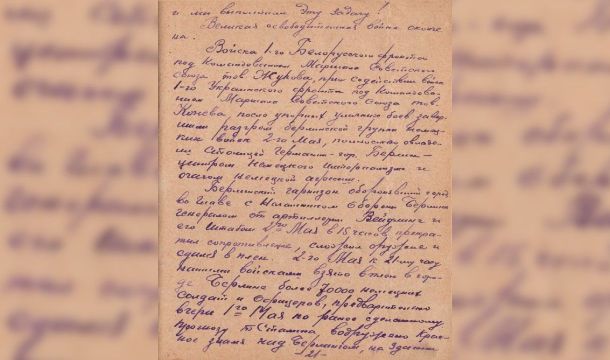 и мы выполнили эту задачу!
Великая освободительная война окончена.
Войска 1-го Белорусского фронта
под Командованием Маршала Советского
Союза тов Жукова, при содействии войск
1-го Украинского фронта под Командова-
нием Маршала Советского Союза тов.
Конева, после упорных уличных боев завер-
шили разгром берлинской группы немец-
ких войск 2-го Мая, полностью овладе-
ли Столицей Германии гор. Берлин-
центром немецкого Империализма и
очагом немецкой агрессии.
Берлинский гарнизон оборонявший город
во Главе с Начальником Обороны Берлина
генералом от артиллерии Вейдлинг и
его Штабом 2го Мая в 15 часов прекра-
тил сопротивление, сложил оружие и
сдался в плен. 2-го Мая к 21му часу
нашими войсками взято в плен в горо-
де Берлине более 70000 немецких
Солдат и Офицеров, предварительно
вчери 1го Мая по ранее сделанному
прогнозу т Сталина, водружено Крас-
ное знамя над Берлином, на здании
-21-